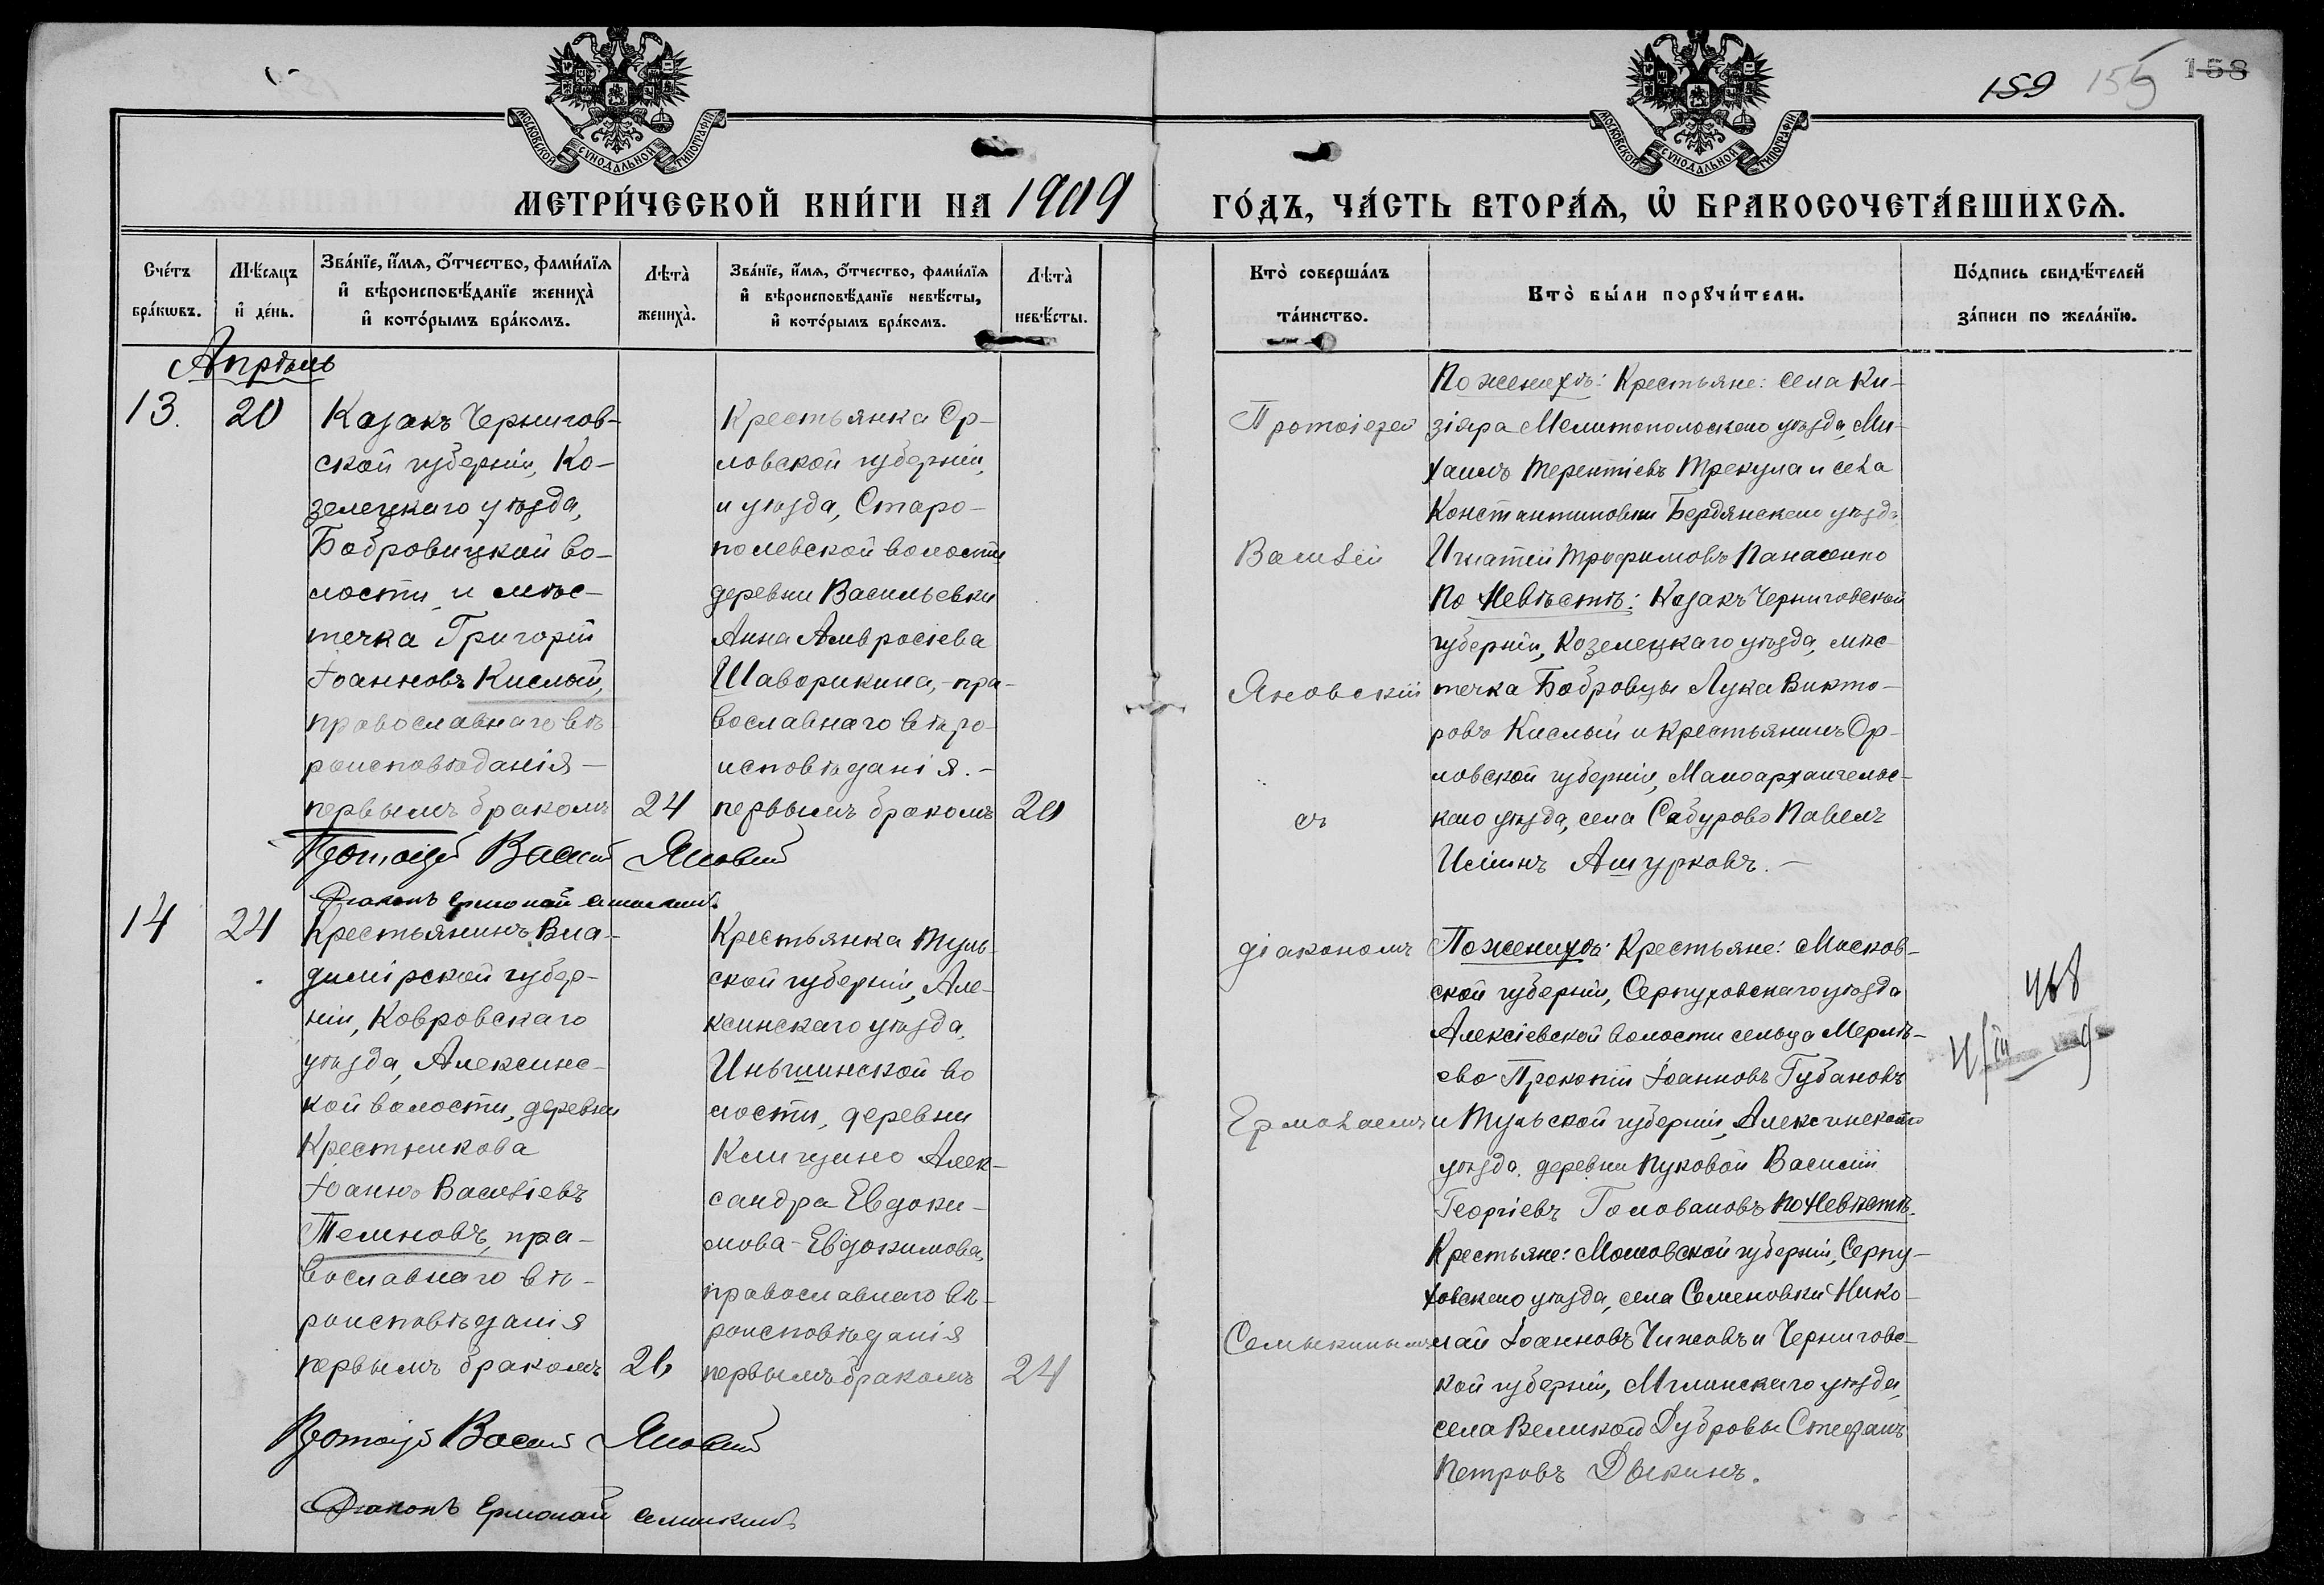 159 155 158
МОСКОВСКОЙ СѴНОДАЛЬНОЙ ТИПОГРАФІИ
МОСКОВСКОЙ СѴНОДАЛЬНОЙ ТИПОГРАФІИ
МЕТРИ́ЧЕСКОЙ КНИ́ГИ НА 1909
ГО́ДЪ, ЧА́СТЬ ВТОРА́Ѧ, Ѡ БРАКОСОЧЕТА́ВШИХСѦ.
Сче́тъ бра́кѡвъ.
Мѣ́сѧцъ и҆ де́нь.
Зва́нїе, и҆́мѧ, ѻ҆́тчество, фами́лїѧ и҆ вѣроисповѣ́данїе жениха̀ и҆ кото́рымъ бра́комъ.
Лѣта̀ жениха̀.
Зва́нїе, и҆́мѧ, ѻ҆́тчество, фами́лїѧ и҆ вѣроисповѣ́данїе невѣ́сты, и҆ кото́рымъ бра́комъ.
Лѣта̀ невѣ́сты.
Кто̀ соверша́лъ та́инство.
Кто̀ бы́ли порꙋчи́тели.
По́дпись свидѣ́телей за́писи по жела́нїю.
Апрѣль
13.
20
Казакъ Чернигов-
ской губерніи, Ко-
зелецкаго уѣзда,
Бобровицкой во-
лости и мѣс-
течка Григорій
Іоанновъ Кислый,
православнаго вѣ-
роисповѣданія -
первымъ бракомъ
24
Крестьянка Ор-
ловской губерніи,
и уѣзда, Старо-
полевской волости
деревни Васильевки
Анна Амвросіева
Шаворикина, - пра-
вославнаго вѣро-
исповѣданія. -
первымъ бракомъ
20
Протоіерей Василій Яновскій
Діаконъ Ермолай Семыкинъ
Протоіерей
Василій
Яновскій
съ
По женихѣ: Крестьяне: села Ки-
зіяра Мелитопольскаго уѣзда, Ми-
хаилъ Терентіевъ Трекула и села
Константиновки Бердянскаго уѣзда
Игнатій Трофимовъ Панасенко
По Невѣстѣ: Казакъ Черниговской
губерніи, Козелецкаго уѣзда, мѣс-
течка Бобровцы Лука Викто-
ровъ Кислый и крестьянинъ Ор-
ловской губерніи, Малоархангельс-
каго уѣзда, села Сабурово Павелъ
Ашурковъ. -
14
24
Крестьянинъ Вла-
димірской губер-
ніи, Ковровскаго
уѣзда, Алексинс-
кой волости, деревни
Крестникова
Іоаннъ Василіевъ
Телиновъ, пра-
вославнаго вѣ-
роисповѣданія
первымъ бракомъ
26
Крестьянка Туль-
ской губерніи, Але-
ксинскаго уѣзда,
Иньшинской во
лости, деревни
Клищино Алек-
сандра Евдоки-
мова - Евдокимова,
православнаго вѣ-
роисповѣданія
первымъ бракомъ
24
Протоіерей Василій Яновскій
Діаконъ Ермолай Семыкинъ
діакономъ
Ермолаемъ
Семыкинымъ
По женихѣ: Крестьяне: Москов-
ской губерніи, Серпуховскаго уѣзда
Алексіевской волости сельца Мерлѣ-
ево Прокопій Іоанновъ Губановъ
и Тульской губерніи, Алексинскаго
уѣзда, деревни Пуковой Василій
Георгіевъ Головановъ по Невѣстѣ.
Крестьяне: Московской губерніи, Серпу-
ховскаго уѣзда, села Семеновки Нико-
лай Іоанновъ Чижовъ и Черниговс-
кой губерніи, Мглинскаго уѣзда,
села Великой Дубровы Стефанъ
Петровъ Дыкинъ.
468